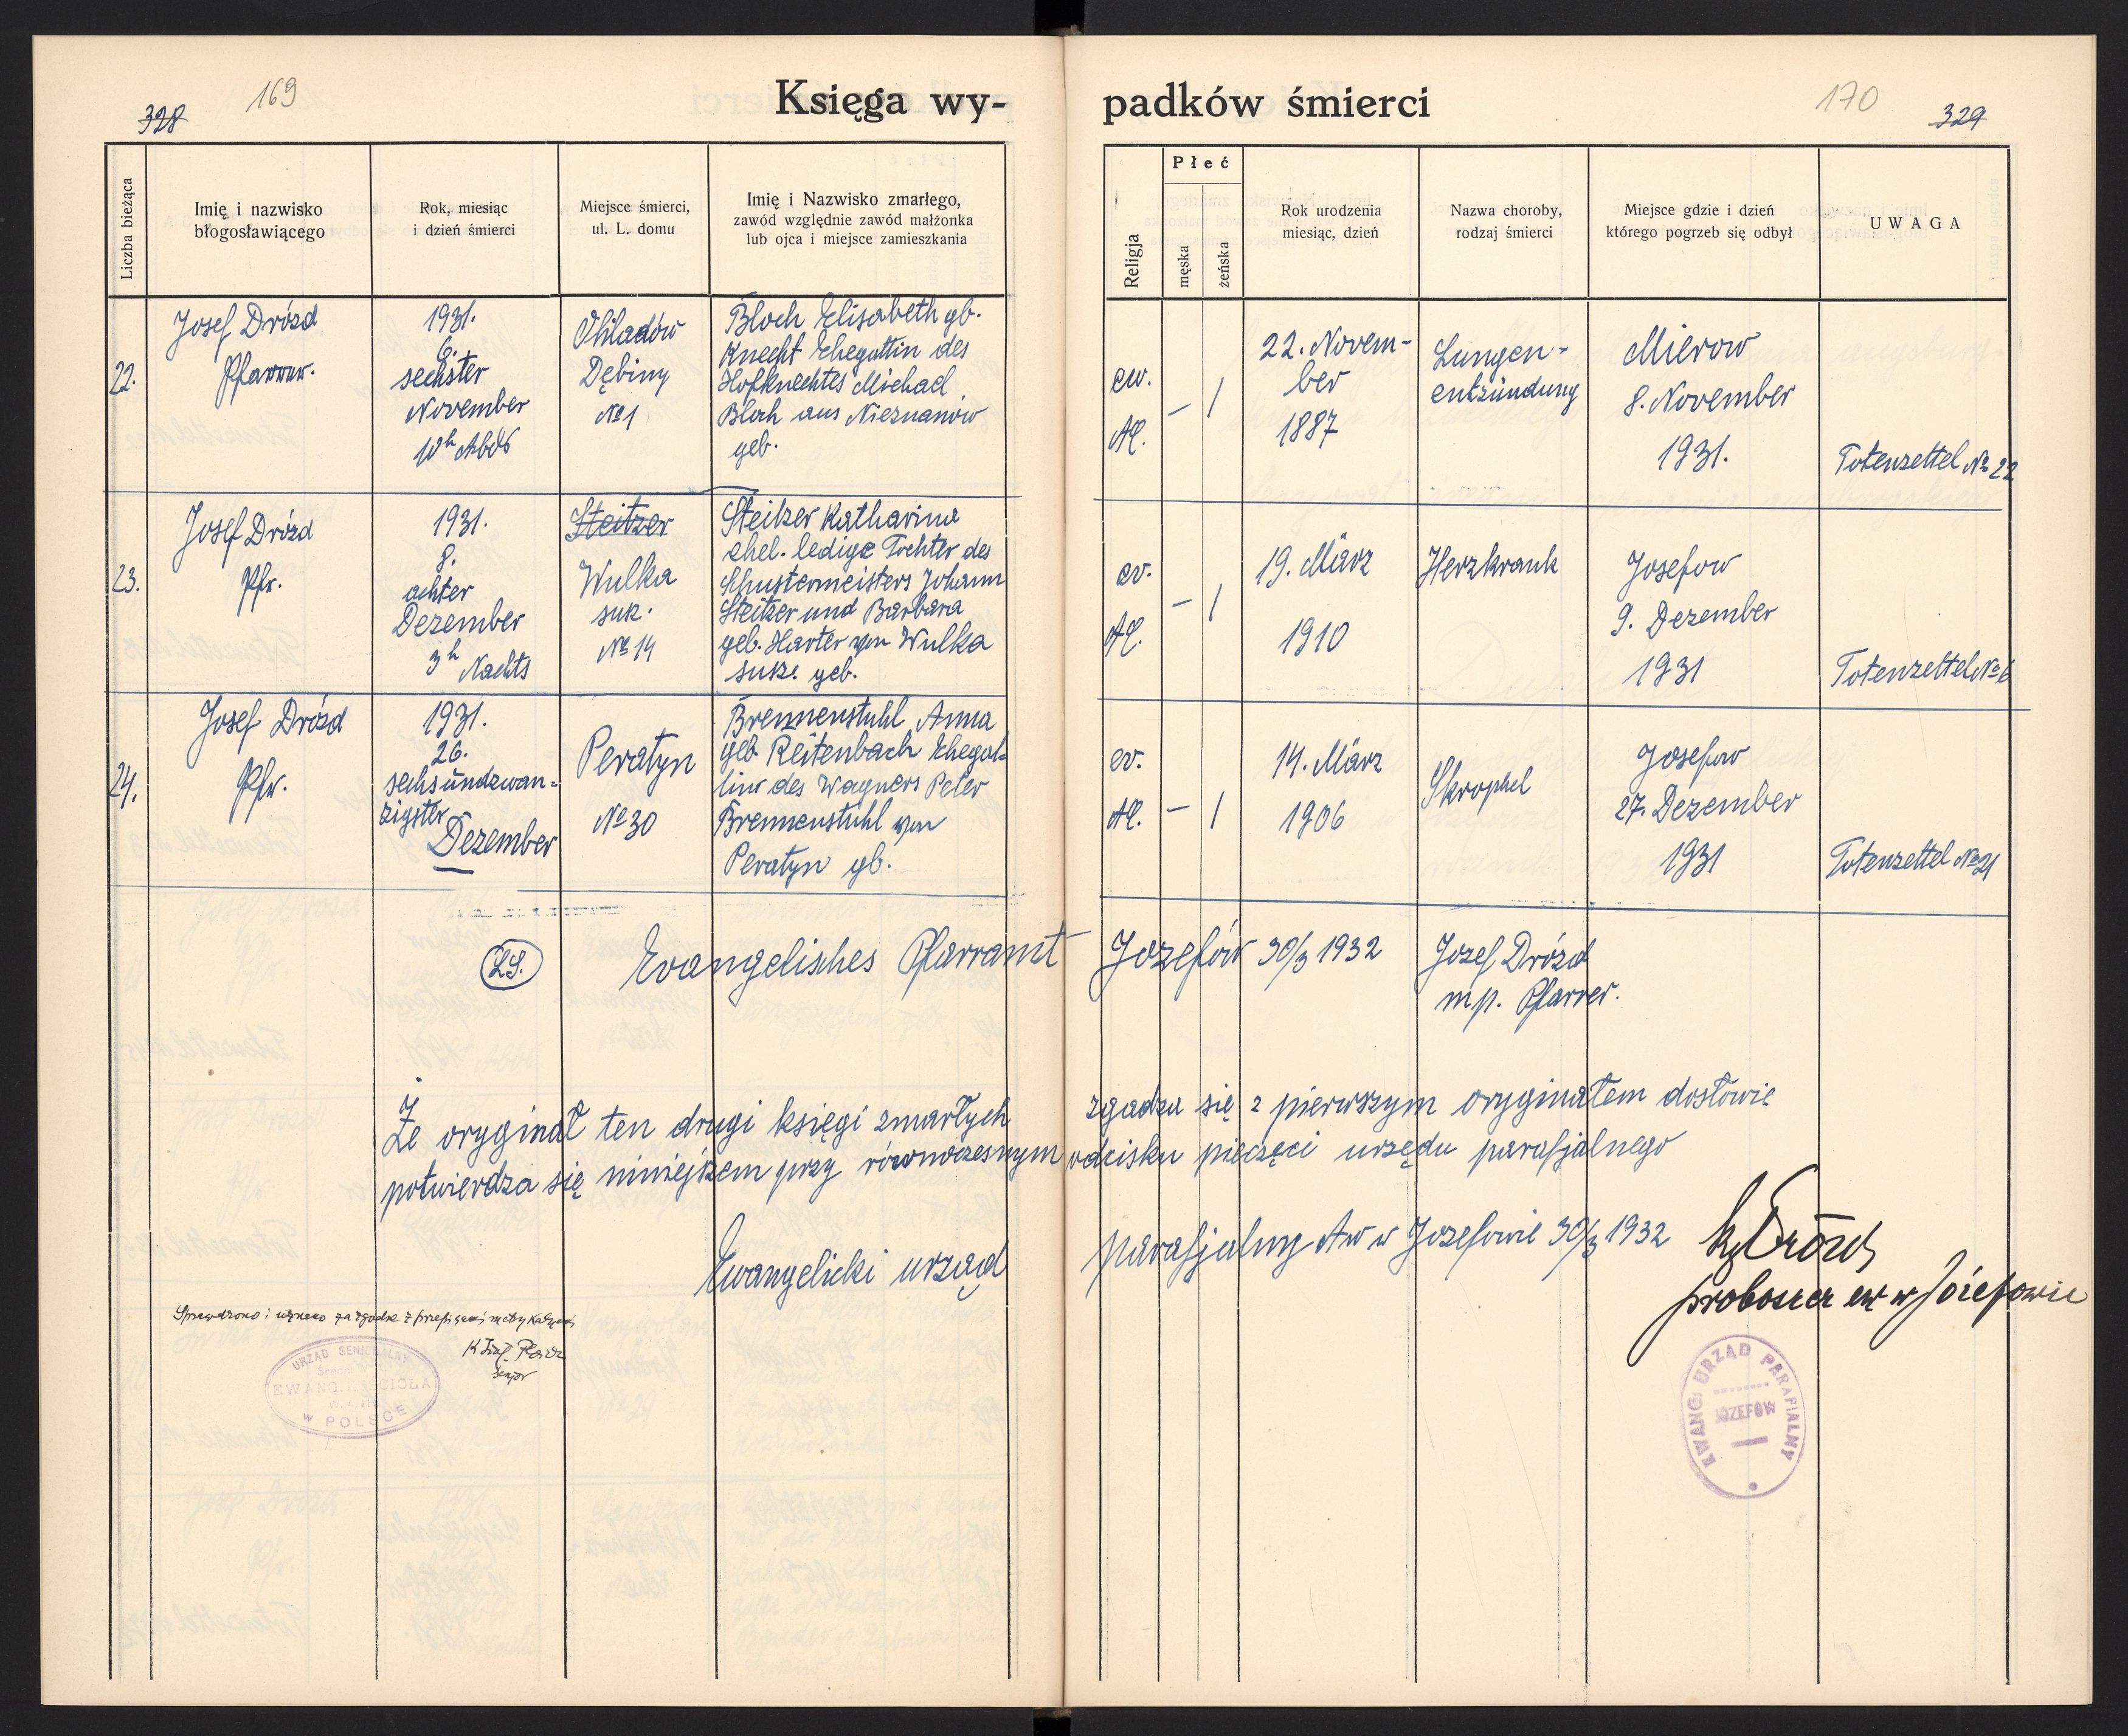 328
169
Księga wy-
padków śmierci
170
329
Liczba bieżąca
Imię i nazwisko
błogosławiącego
Rok, miesiąc
i dzień śmierci
Miejsce śmierci,
ul. L. domu
Imię i Nazwisko zmarłego,
zawód względnie zawód małżonka
lub ojca i miejsce zamieszkania
Religja
Płeć
męska
żeńska
Rok urodzenia
miesiąc, dzień
Nazwa choroby,
rodzaj śmierci
Miejsce gdzie i dzień
którego pogrzeb się odbył
UWAGA
22.
Josef Drózd
Pfarrer.
1931.
6.
sechster
November
10h Abds
Ohladów
Dębiny
№ 1
Bloch Elisabeth gb.
Knecht Ehegattin des
Hofknechtes Michael
Bloch aus Nieznanów
geb.
ew.
AC.
— /
22. Novem-
ber
1887
Lungen-
entzündung
Mierow
8. November
1931.
Totenzettel № 22
23.
Josef Drózd
Pfr.
1931.
8.
achter
Dezember
3h Nachts
Steitzer
Wulka
suk.
№ 14
Steitzer Katharina
ehel. ledige Tochter des
Schustermeisters Johann
Steitzer und Barbara
geb. Harter von Wulka
susz. geb.
ev.
AC.
— /
19. März
1910
Herzkrank
Josefow
9. Dezember
1931
Totenzettel № 6
24.
Josef Drózd
Pfr.
1931.
26.
sechsundzwan=
zigster
Dezember
Peratyn
№ 30
Brennenstuhl Anna
geb Reitenbach Ehegat=
tin des Wagners Peter
Brennenstuhl von
Peratyn gb.
ev.
AC.
— /
14. März
1906
Skrophel
Josefow
27. Dezember
1931
Totenzettel № 21
LS.
Evangelisches Pfarramt Jozefów 30/3 1932
Jozef Drózd
mp. Pfarrer.
Że oryginał ten drugi księgi zmarłych zgadza się z pierwszym oryginałem dosłowie
potwierdza się niniejszem przy równoczesnym odcisku pieczęci urzędu parafjalnego
Ewangelicki urząd parafjalny Aw w Jozefowie 30/3 1932
ks Drózd
proboszcz ew w Józefowie
Sprawdzono i uznano za zgodne z przepisami
Senjor
URZĄD SENIORALNY
EWANG. KOŚCIOŁA
w POLSCE
EWANG. URZĄD PARAFIALNY
JÓZEFÓW